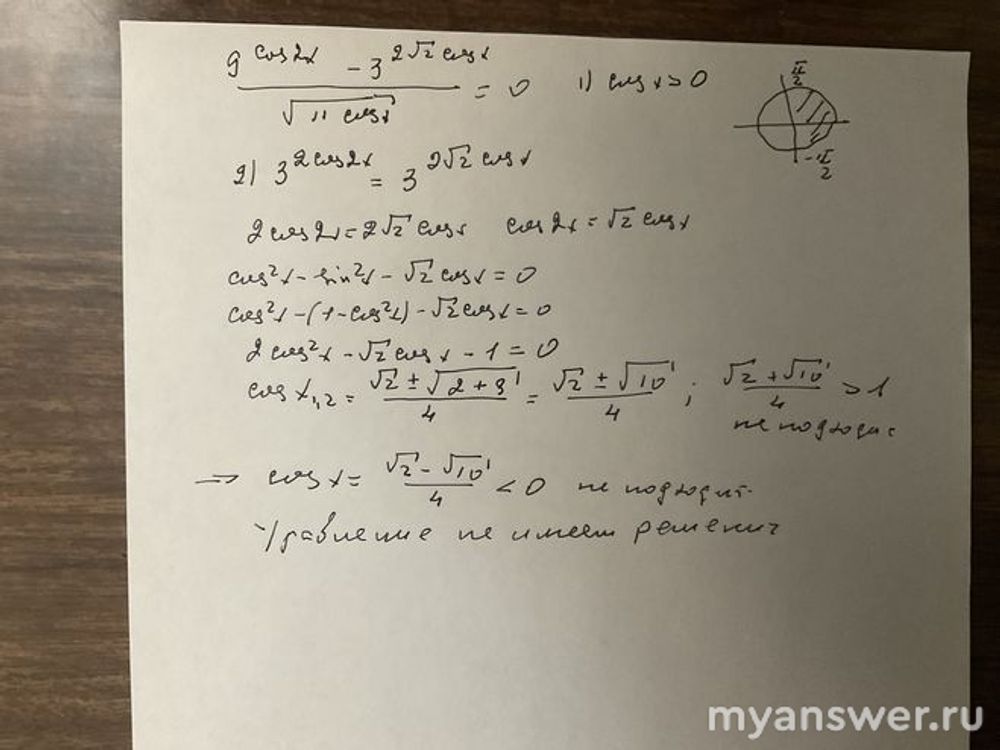 9^(cos2x) - 3^(2√2 cosx) / √(11 cosx) = 0 1) cosx>0 π/2
-π/2
2) 3^(2cos2x) = 3^(2√2 cosx)
2cos2x=2√2 cosx cos2x=√2 cosx
cos²x-sin²x-√2 cosx=0
cos²x-(1-cos²x)-√2cosx=0
2cos²x-√2cosx-1=0
cosx₁,₂= (√2±√(2+8))/4 = (√2±√10)/4 ; (√2+√10)/4 >1
не подходит
⇒ cosx= (√2-√10)/4 <0 не подходит.
Уравнение не имеет решений
myanswer.ru